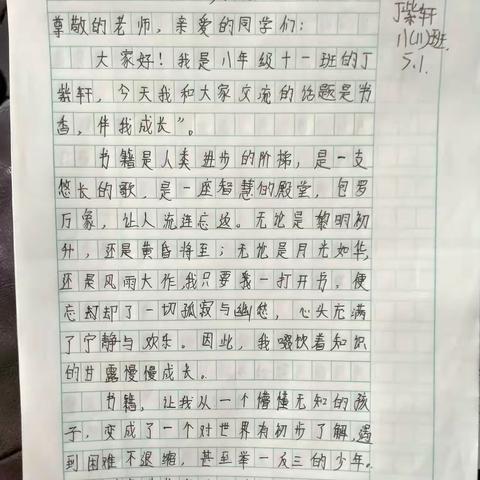 尊敬的老师，亲爱的同学们：
大家好！我是八年级十一班的丁
紫轩，今天我和大家交流的话题是书
香，伴我成长”。
书籍是人类进步的阶梯，是一支
悠长的歌，是一座智慧的殿堂，包罗
万象，让人流连忘返。无论是黎明初
升，还是黄昏将至；无论是月光如华，
还是风雨大作，我只要我一打开书，便
忘却了一切孤寂与幽愁，心头充满
了宁静与欢乐。因此，我啜饮着知识
的甘露慢慢成长。
书籍，让我从一个懵懂无知的孩
子，变成了一个对世界有初步了解，遇
到困难不退缩，甚至举一反三的少年。
丁紫轩
八(11)班
5.1.